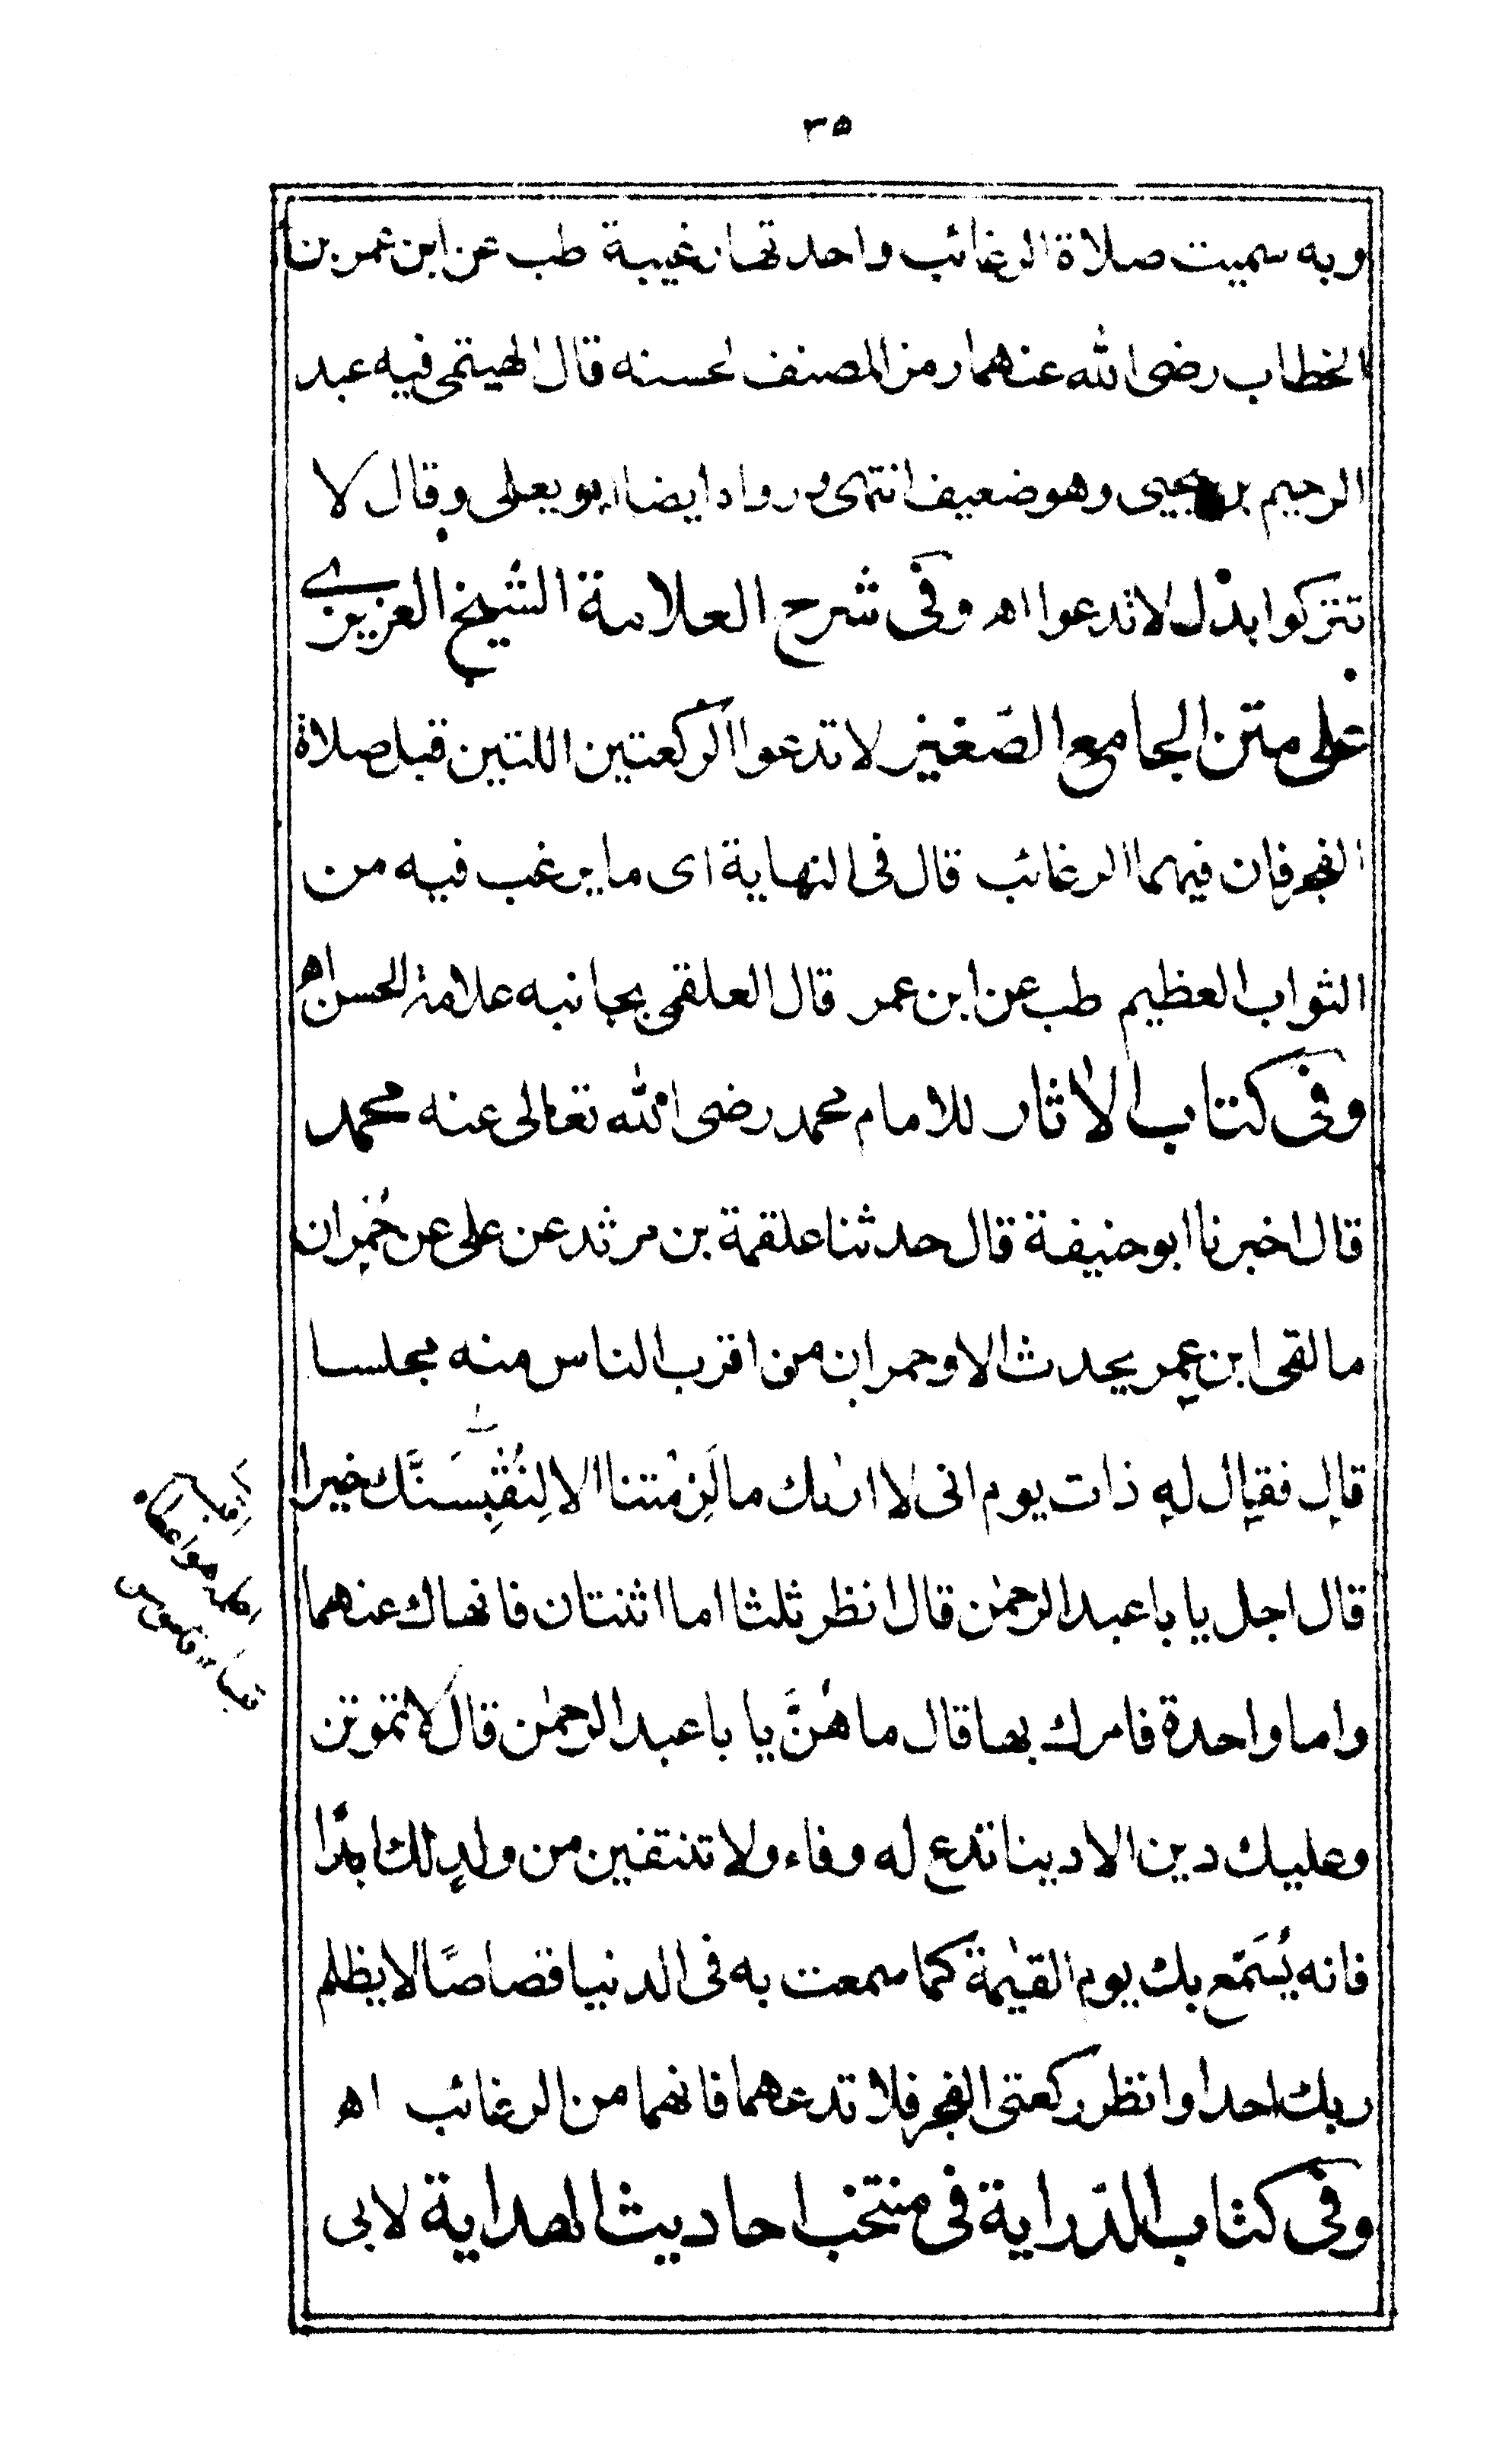 ٣٥
وبه سميت صلاة الرغائب واحدتها رغيبة طب عن ابن عمر بن
الخطاب رضى الله عنهما رمز المصنف لحسنه قال الهيتمى فيه عبد
الرحيم بن يحيى وهو ضعيف انتهى ورواه ايضا ابو يعلى وقال لا
تتركوا بدل لا تدعوا اه وفى شرح العلامة الشيخ العزيزى
على متن الجامع الصّغير لا تدعوا الركعتين اللتين قبل صلاة
الفجر فان فيهما الرغائب قال فى النهاية اى ما يرغب فيه من
الثواب العظيم طب عن ابن عمر قال العلقمى بجانبه علامة الحسن اه
وفى كتاب الاٰثار للامام محمد رضى الله تعالى عنه محمد
قال اخبرنا ابو حنيفة قال حدثنا علقمة بن مرثد عن على عن حُمران
ما لقى ابن عمر يحدث الا وحمران من اقرب الناس منه مجلسا
قال فقال له ذات يوم انى لا اراك ما لَزِمْتنا الا لِنُقْبِسَنَّك خيرا
قال اجل يا با عبد الرحمٰن قال انظر ثلثا اما اثنتان فانهاك عنهما
واما واحدة فامرك بها قال ما هُنَّ يا با عبد الرحمٰن قال لا تموتن
وعليك دين الا دينا تدع له وفاء ولا تنتفين من ولد لك ابدًا
فانه يُسَمّع بك يوم القيٰمة كما سمعت به فى الدنيا قصاصًا لا يظلم
ربك احدا وانظر ركعتى الفجر فلا تدعهما فانهما من الرغائب اه
وفى كتاب الدّراية فى منتخب احاديث الهداية لابى